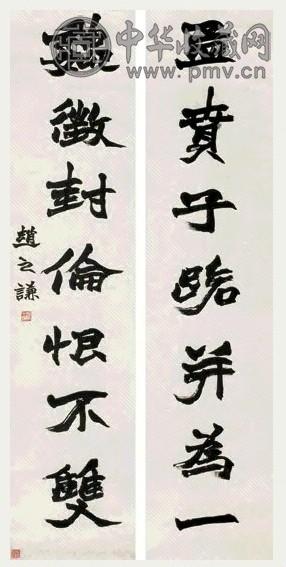 中华收藏网
www.pmv.cn
孟賁子路并為一
魏徵封倫恨不雙
趙之謙